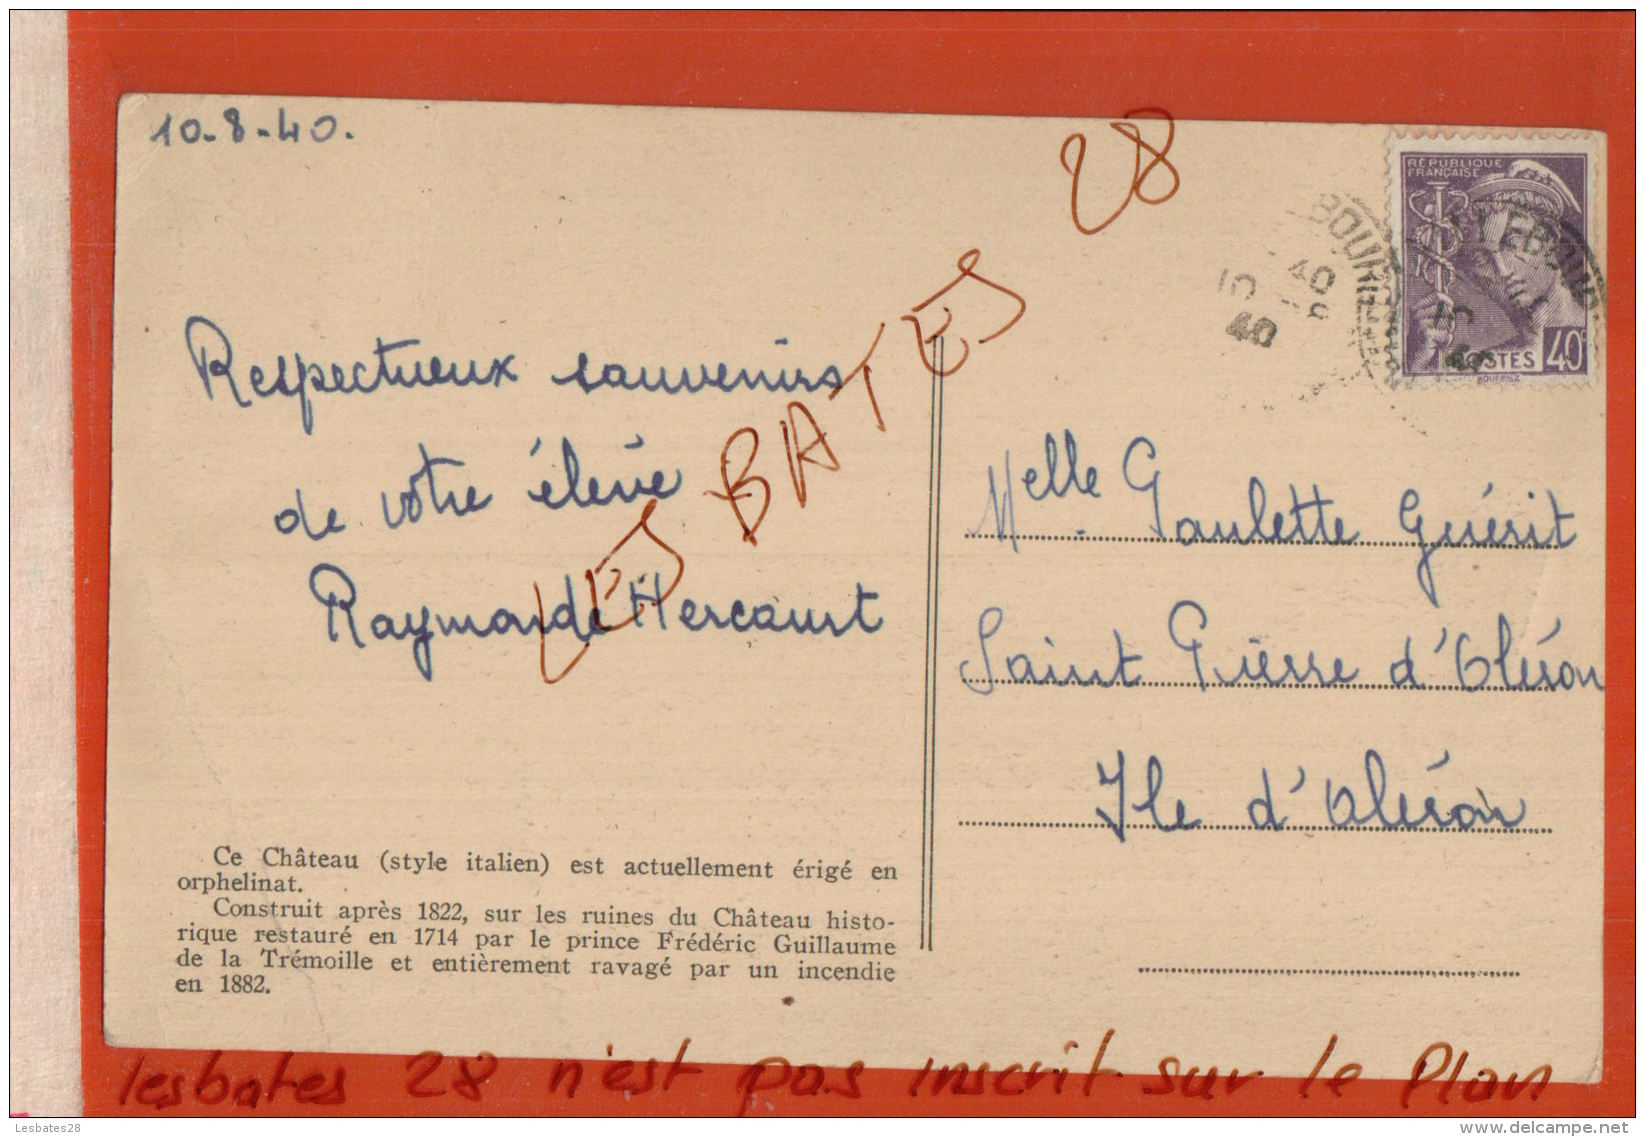 10-8-40.
28
RÉPUBLIQUE
FRANÇAISE
POSTES 40c
LES BATES
Respectueux souvenirs
de votre élève
Raymonde Hercourt
Melle Paulette Guérit
Saint Pierre d'Oléron
Ile d'Oléron
Ce Château (style italien) est actuellement érigé en
orphelinat.
Construit après 1822, sur les ruines du Château histo-
rique restauré en 1714 par le prince Frédéric Guillaume
de la Trémoille et entièrement ravagé par un incendie
en 1882.
lesbates 28 n'est pas inscrit sur le Plan
Lesbates28
www.delcampe.net